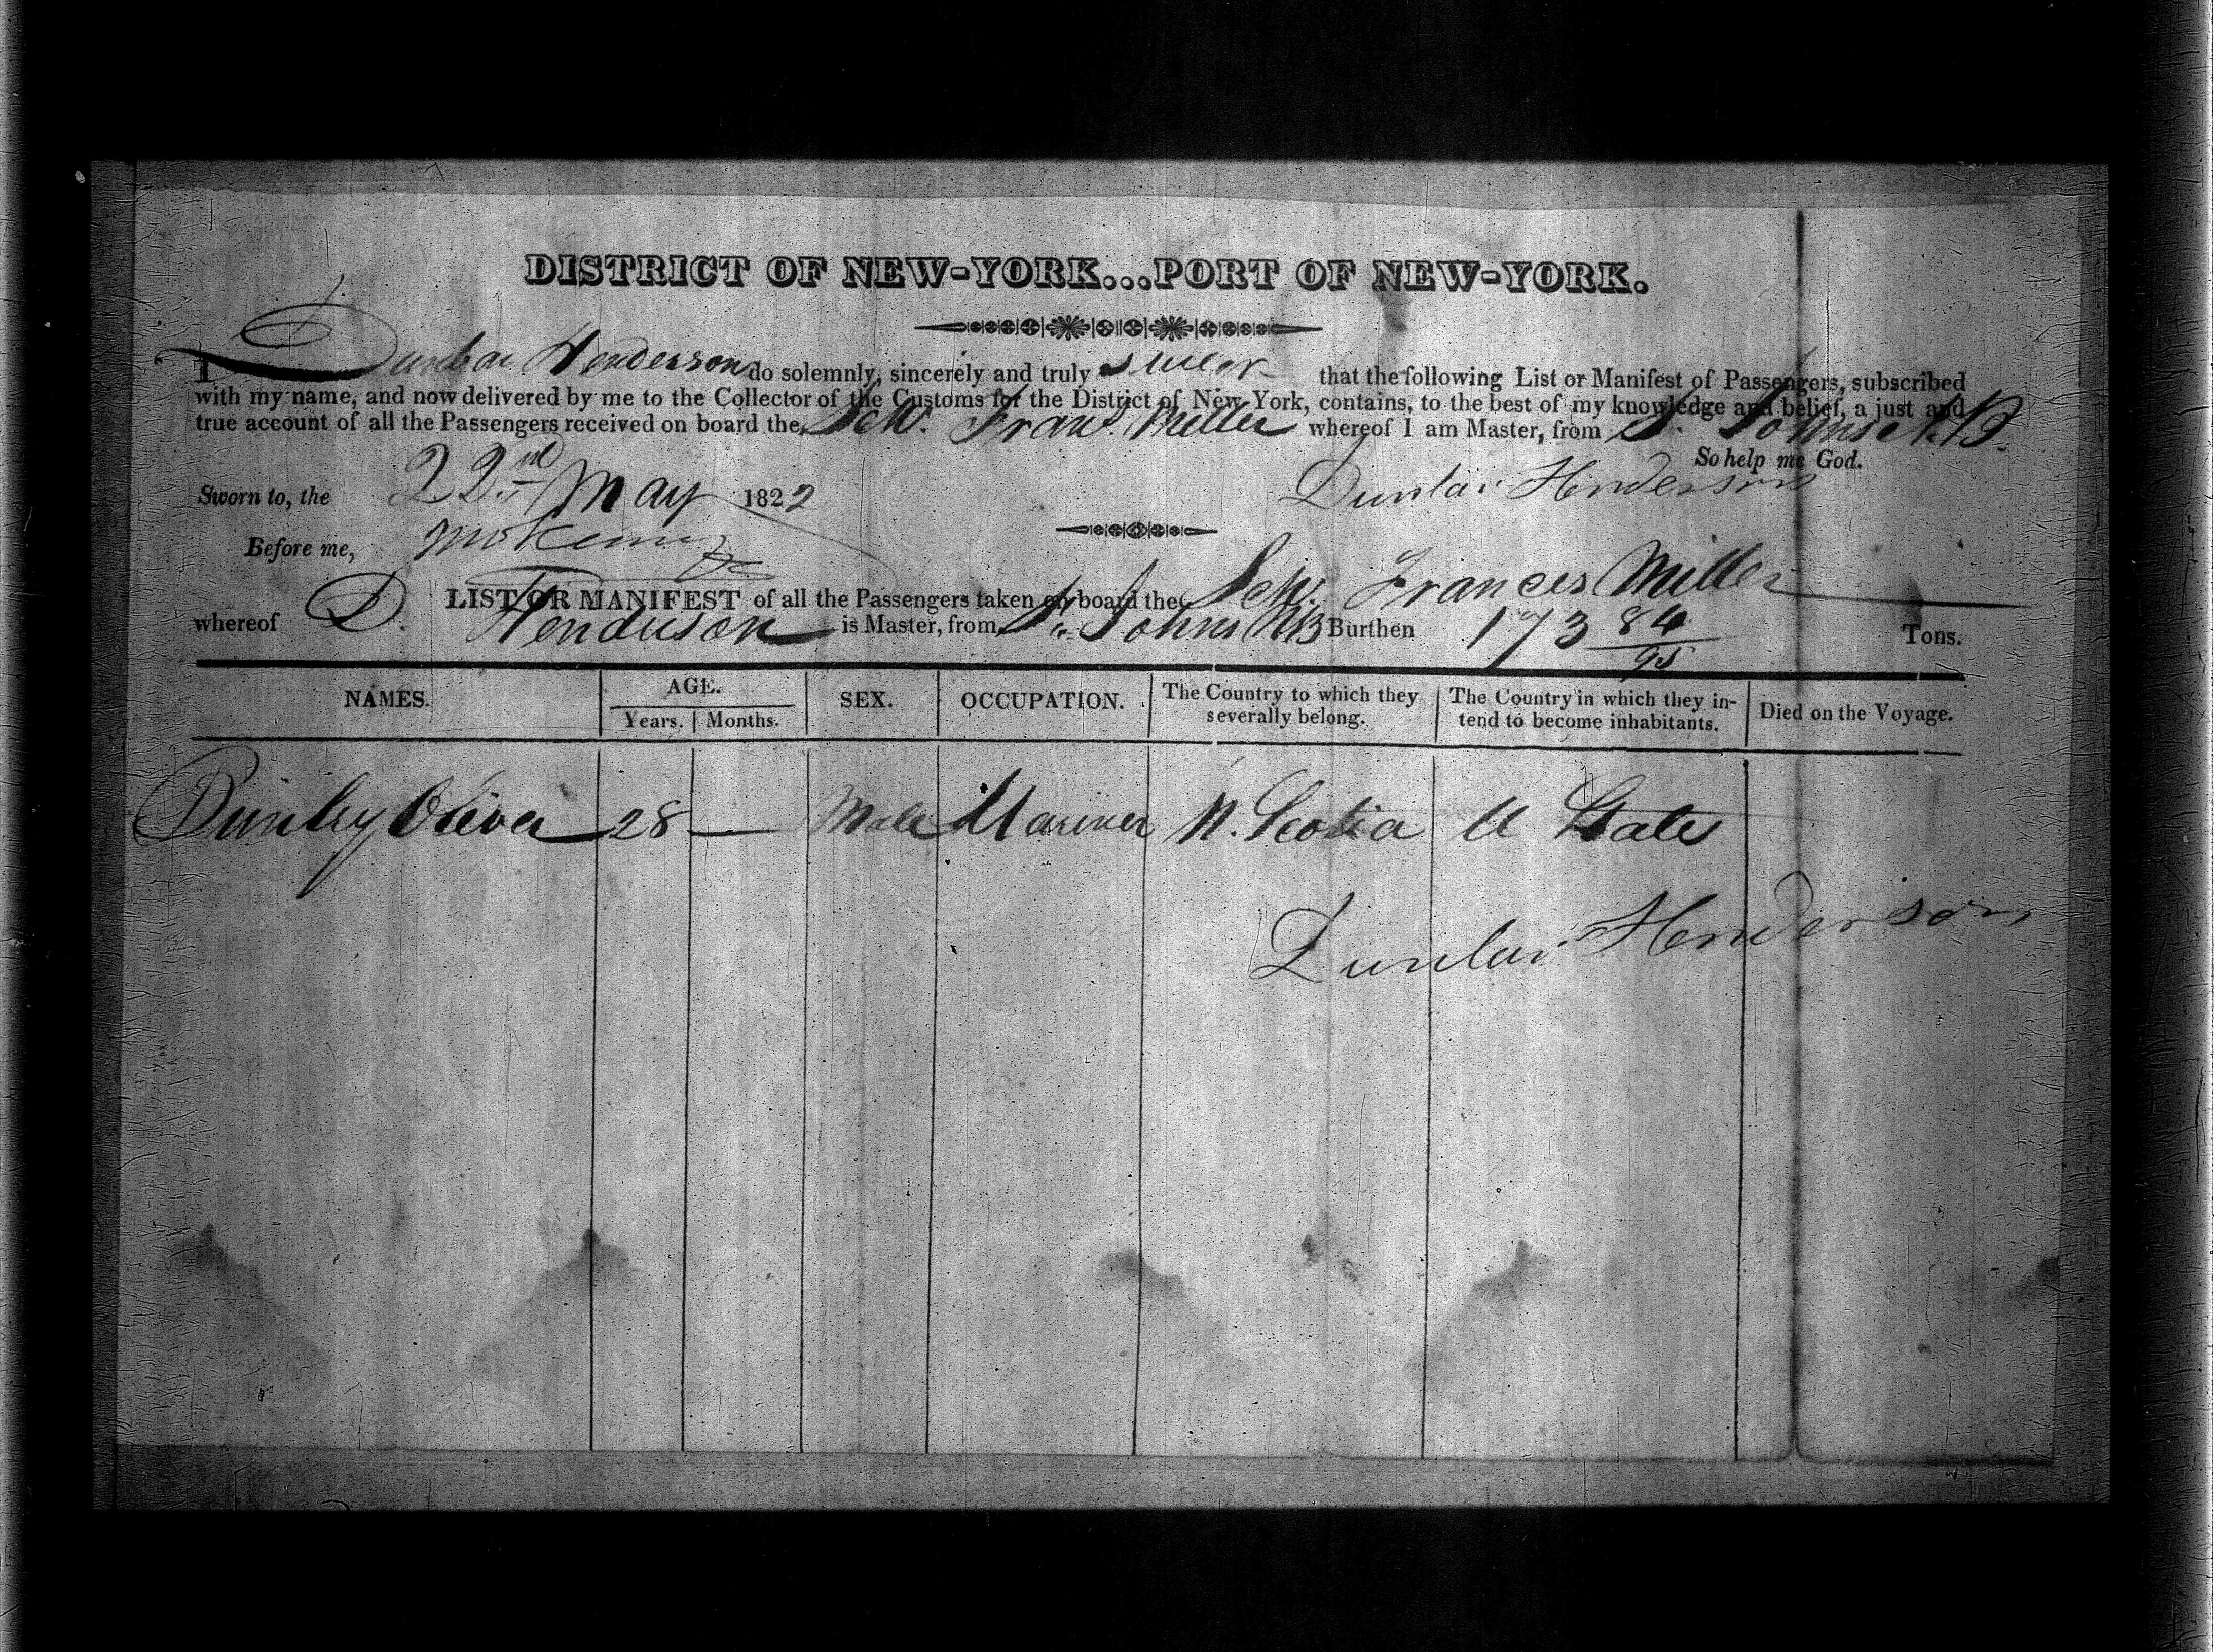 DISTRICT OF NEW-YORK...PORT OF NEW-YORK.
I Dunbar Henderson do solemnly, sincerely and truly swear that the following List or Manifest of Passengers, subscribed
with my name, and now delivered by me to the Collector of the Customs for the District of New-York, contains, to the best of my knowledge and belief, a just and
true account of all the Passengers received on board the Sch. Fran. Miller whereof I am Master, from St. Johns N.B.
So help me God.
Sworn to, the 22nd May 1822
Dunbar Henderson
Before me,
LIST OR MANIFEST of all the Passengers taken on board the Sch. Frances Miller
whereof D. Henderson is Master, from St. Johns NB Burthen 173 84/95 Tons.
NAMES. AGE. Years. Months. SEX. OCCUPATION. The Country to which they severally belong. The Country in which they intend to become inhabitants. Died on the Voyage.
Oliver 28 — Male Mariner N. Scotia U States
Dunbar Henderson